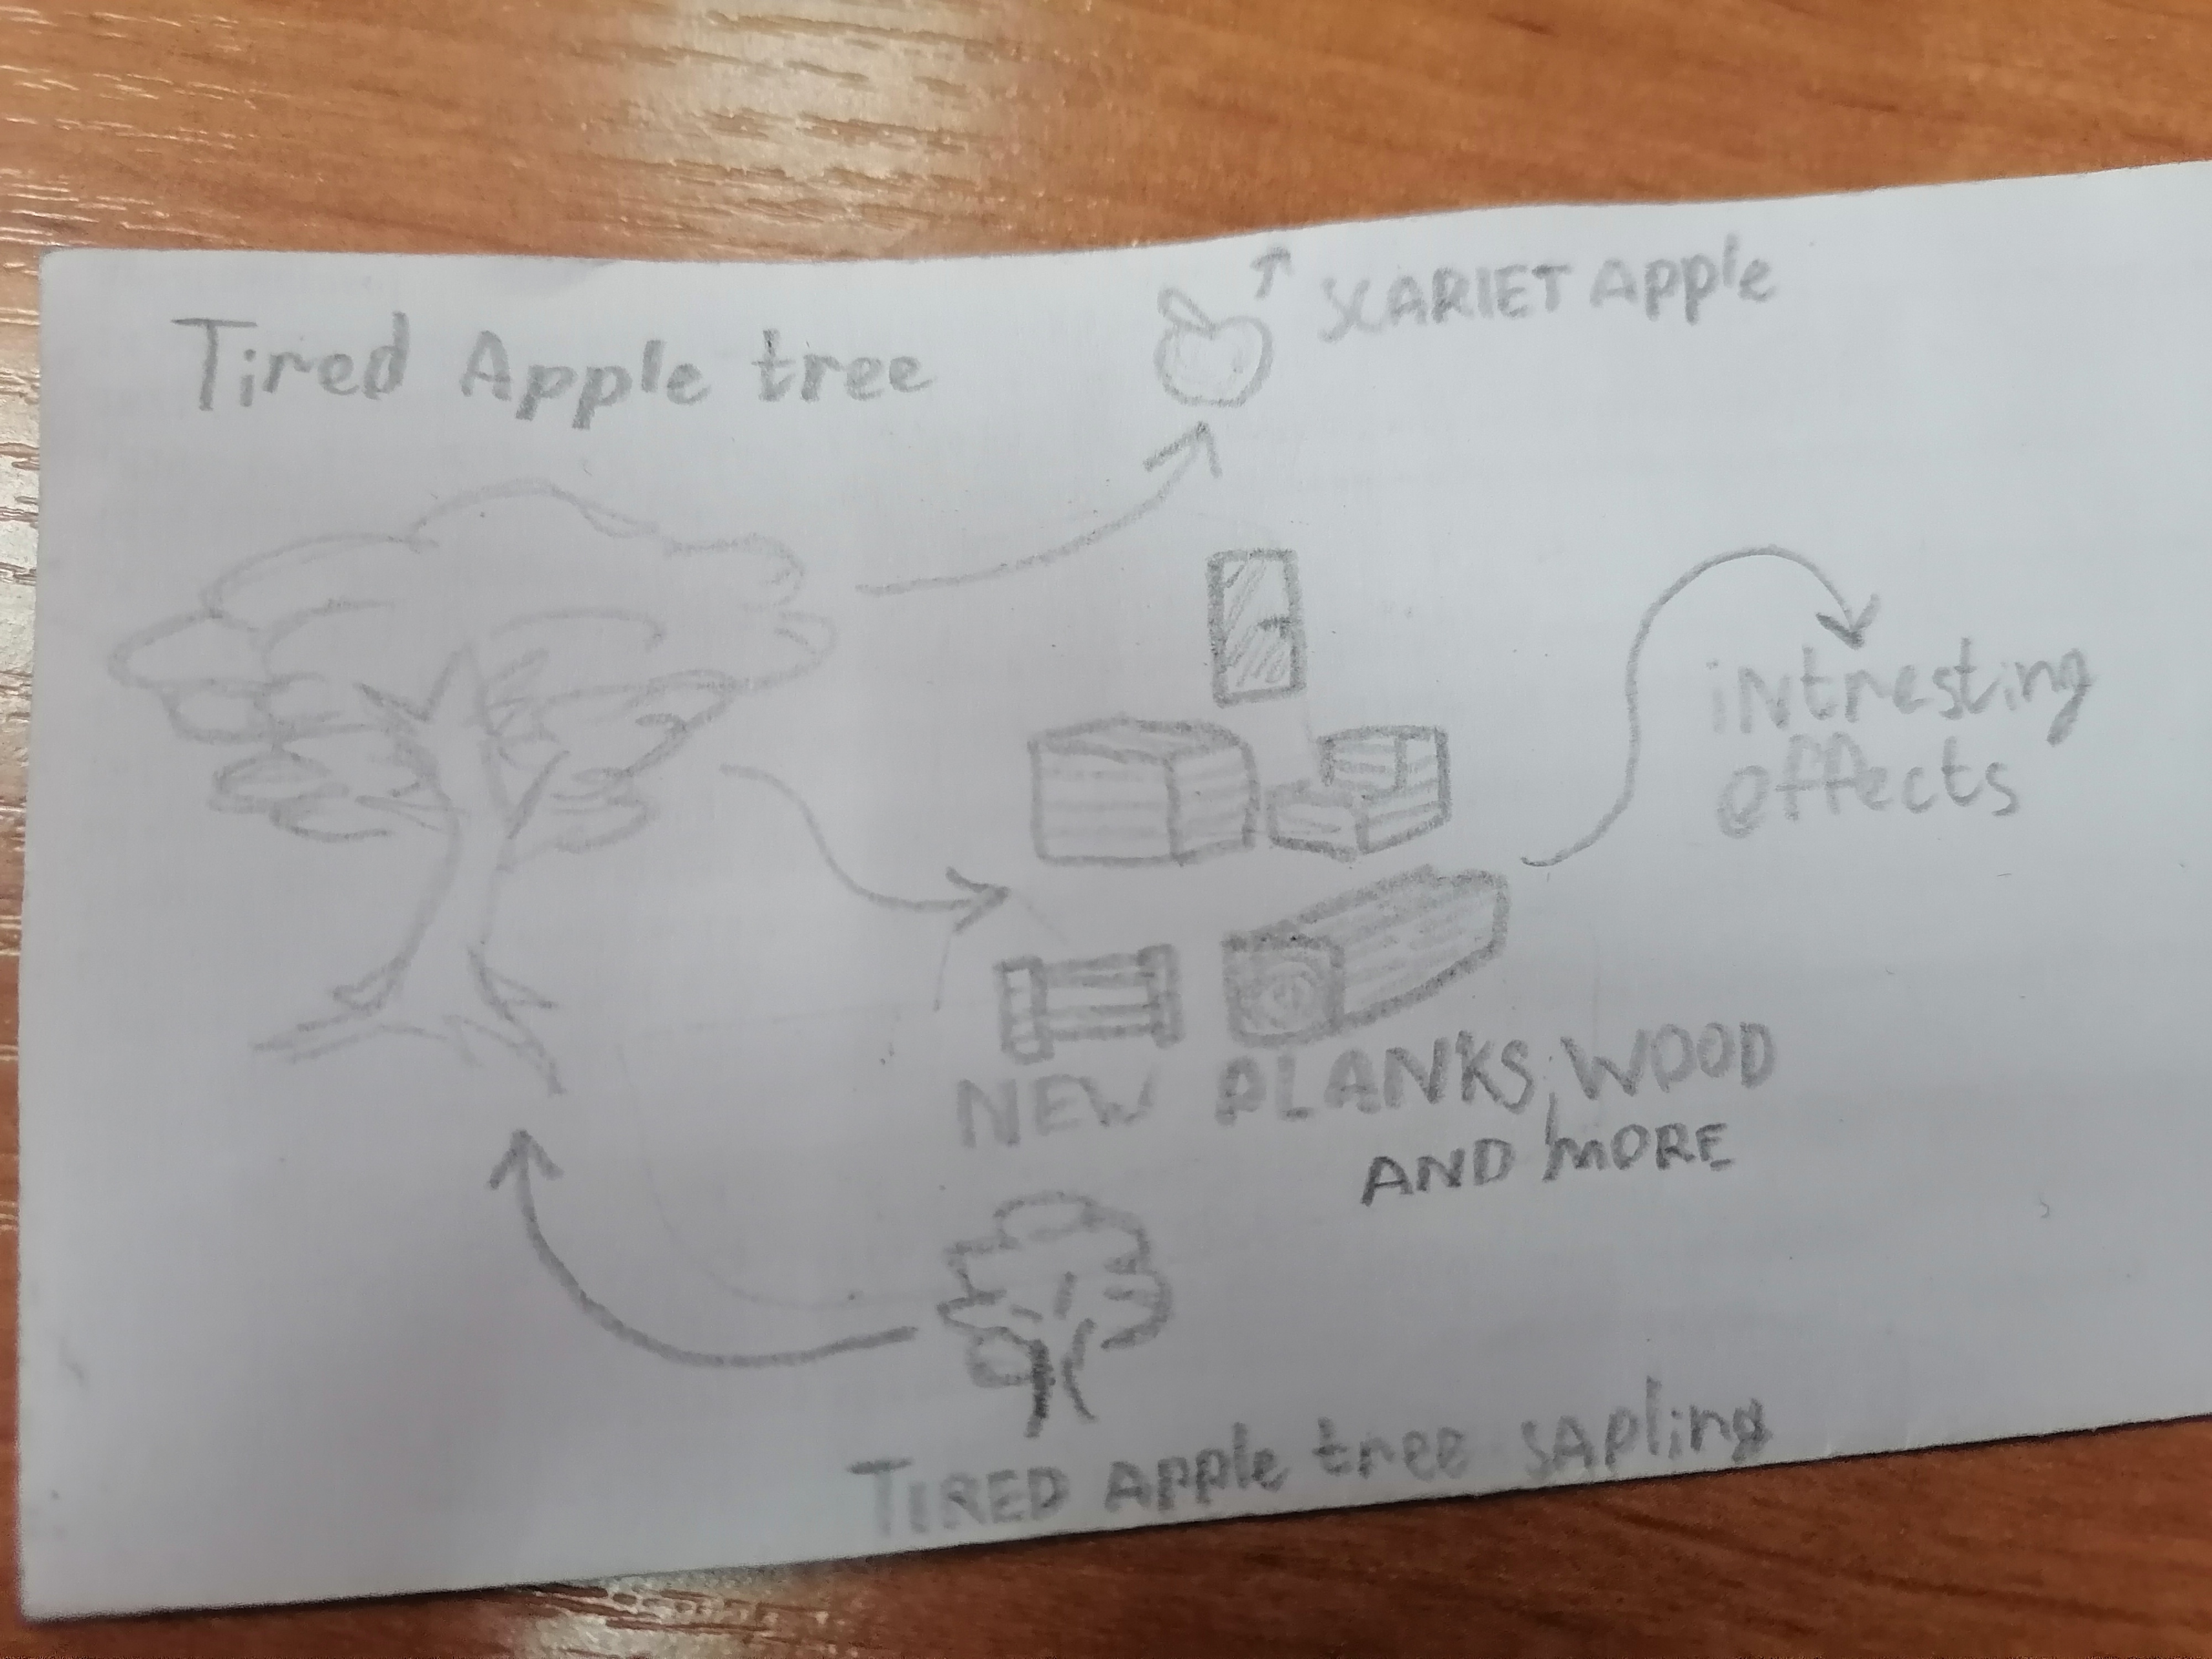 Tired Apple tree
SCARlET Apple
iNtresting
effects
NEW PLANKS, WOOD
AND MORE
TIRED Apple tree sApling